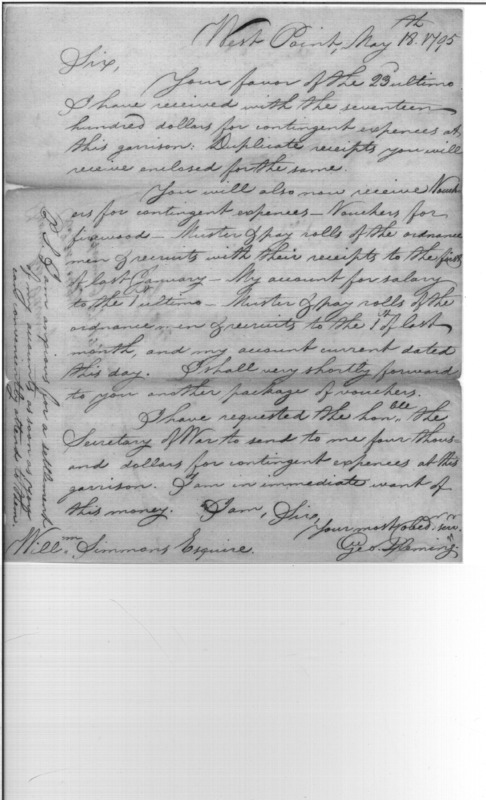 West Point, May 18.th 1795
Sir,
Your favor of the 23 ultimo
I have received with the seventeen
hundred dollars for contingent expences at
this garrison: Duplicate receipts you will
receive enclosed for the same.
You will also now receive Vouch
ers for contingent expences — Vouchers for
firewood — Muster & pay rolls of the ordnance
men & recruits with their receipts to the first
of last January — My account for salary
to the 1st ultimo — Muster & pay rolls of the
ordnance men & recruits to the 1st of last
month, and my account current dated
this day. I shall very shortly forward
to you another package of vouchers.
I have requested the hon.ble the
Secretary of War to send to me four thous-
and dollars for contingent expences at this
garrison. I am in immediate want of
this money. I am, Sir,
Your most obed. serv.
Geo Fleming
Will.m Simmons Esquire.
P.S. I am anxious for a settlement
of my accounts as soon as you
can conveniently attend to them.